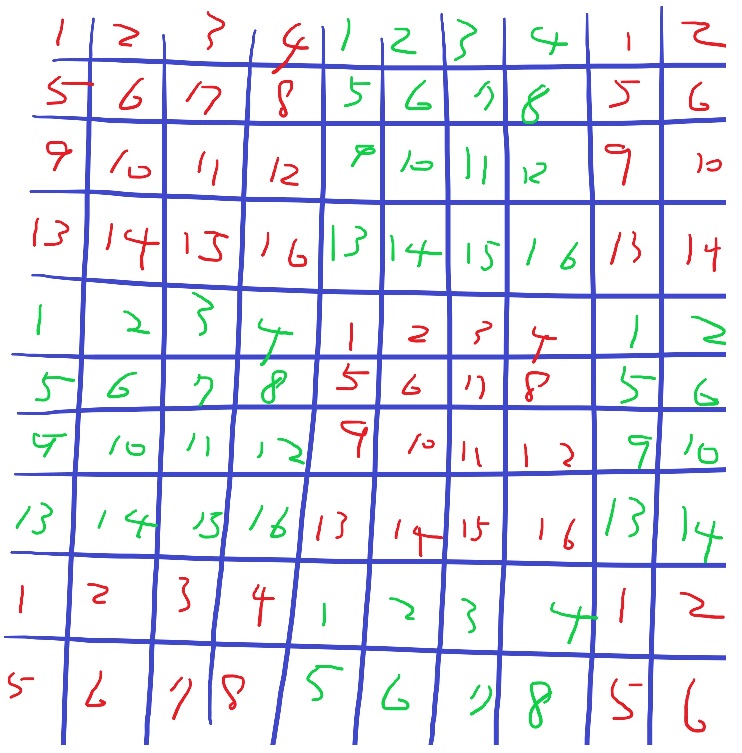 1 2 3 4 1 2 3 4 1 2
5 6 7 8 5 6 7 8 5 6
9 10 11 12 9 10 11 12 9 10
13 14 15 16 13 14 15 16 13 14
1 2 3 4 1 2 3 4 1 2
5 6 7 8 5 6 7 8 5 6
9 10 11 12 9 10 11 12 9 10
13 14 15 16 13 14 15 16 13 14
1 2 3 4 1 2 3 4 1 2
5 6 7 8 5 6 7 8 5 6